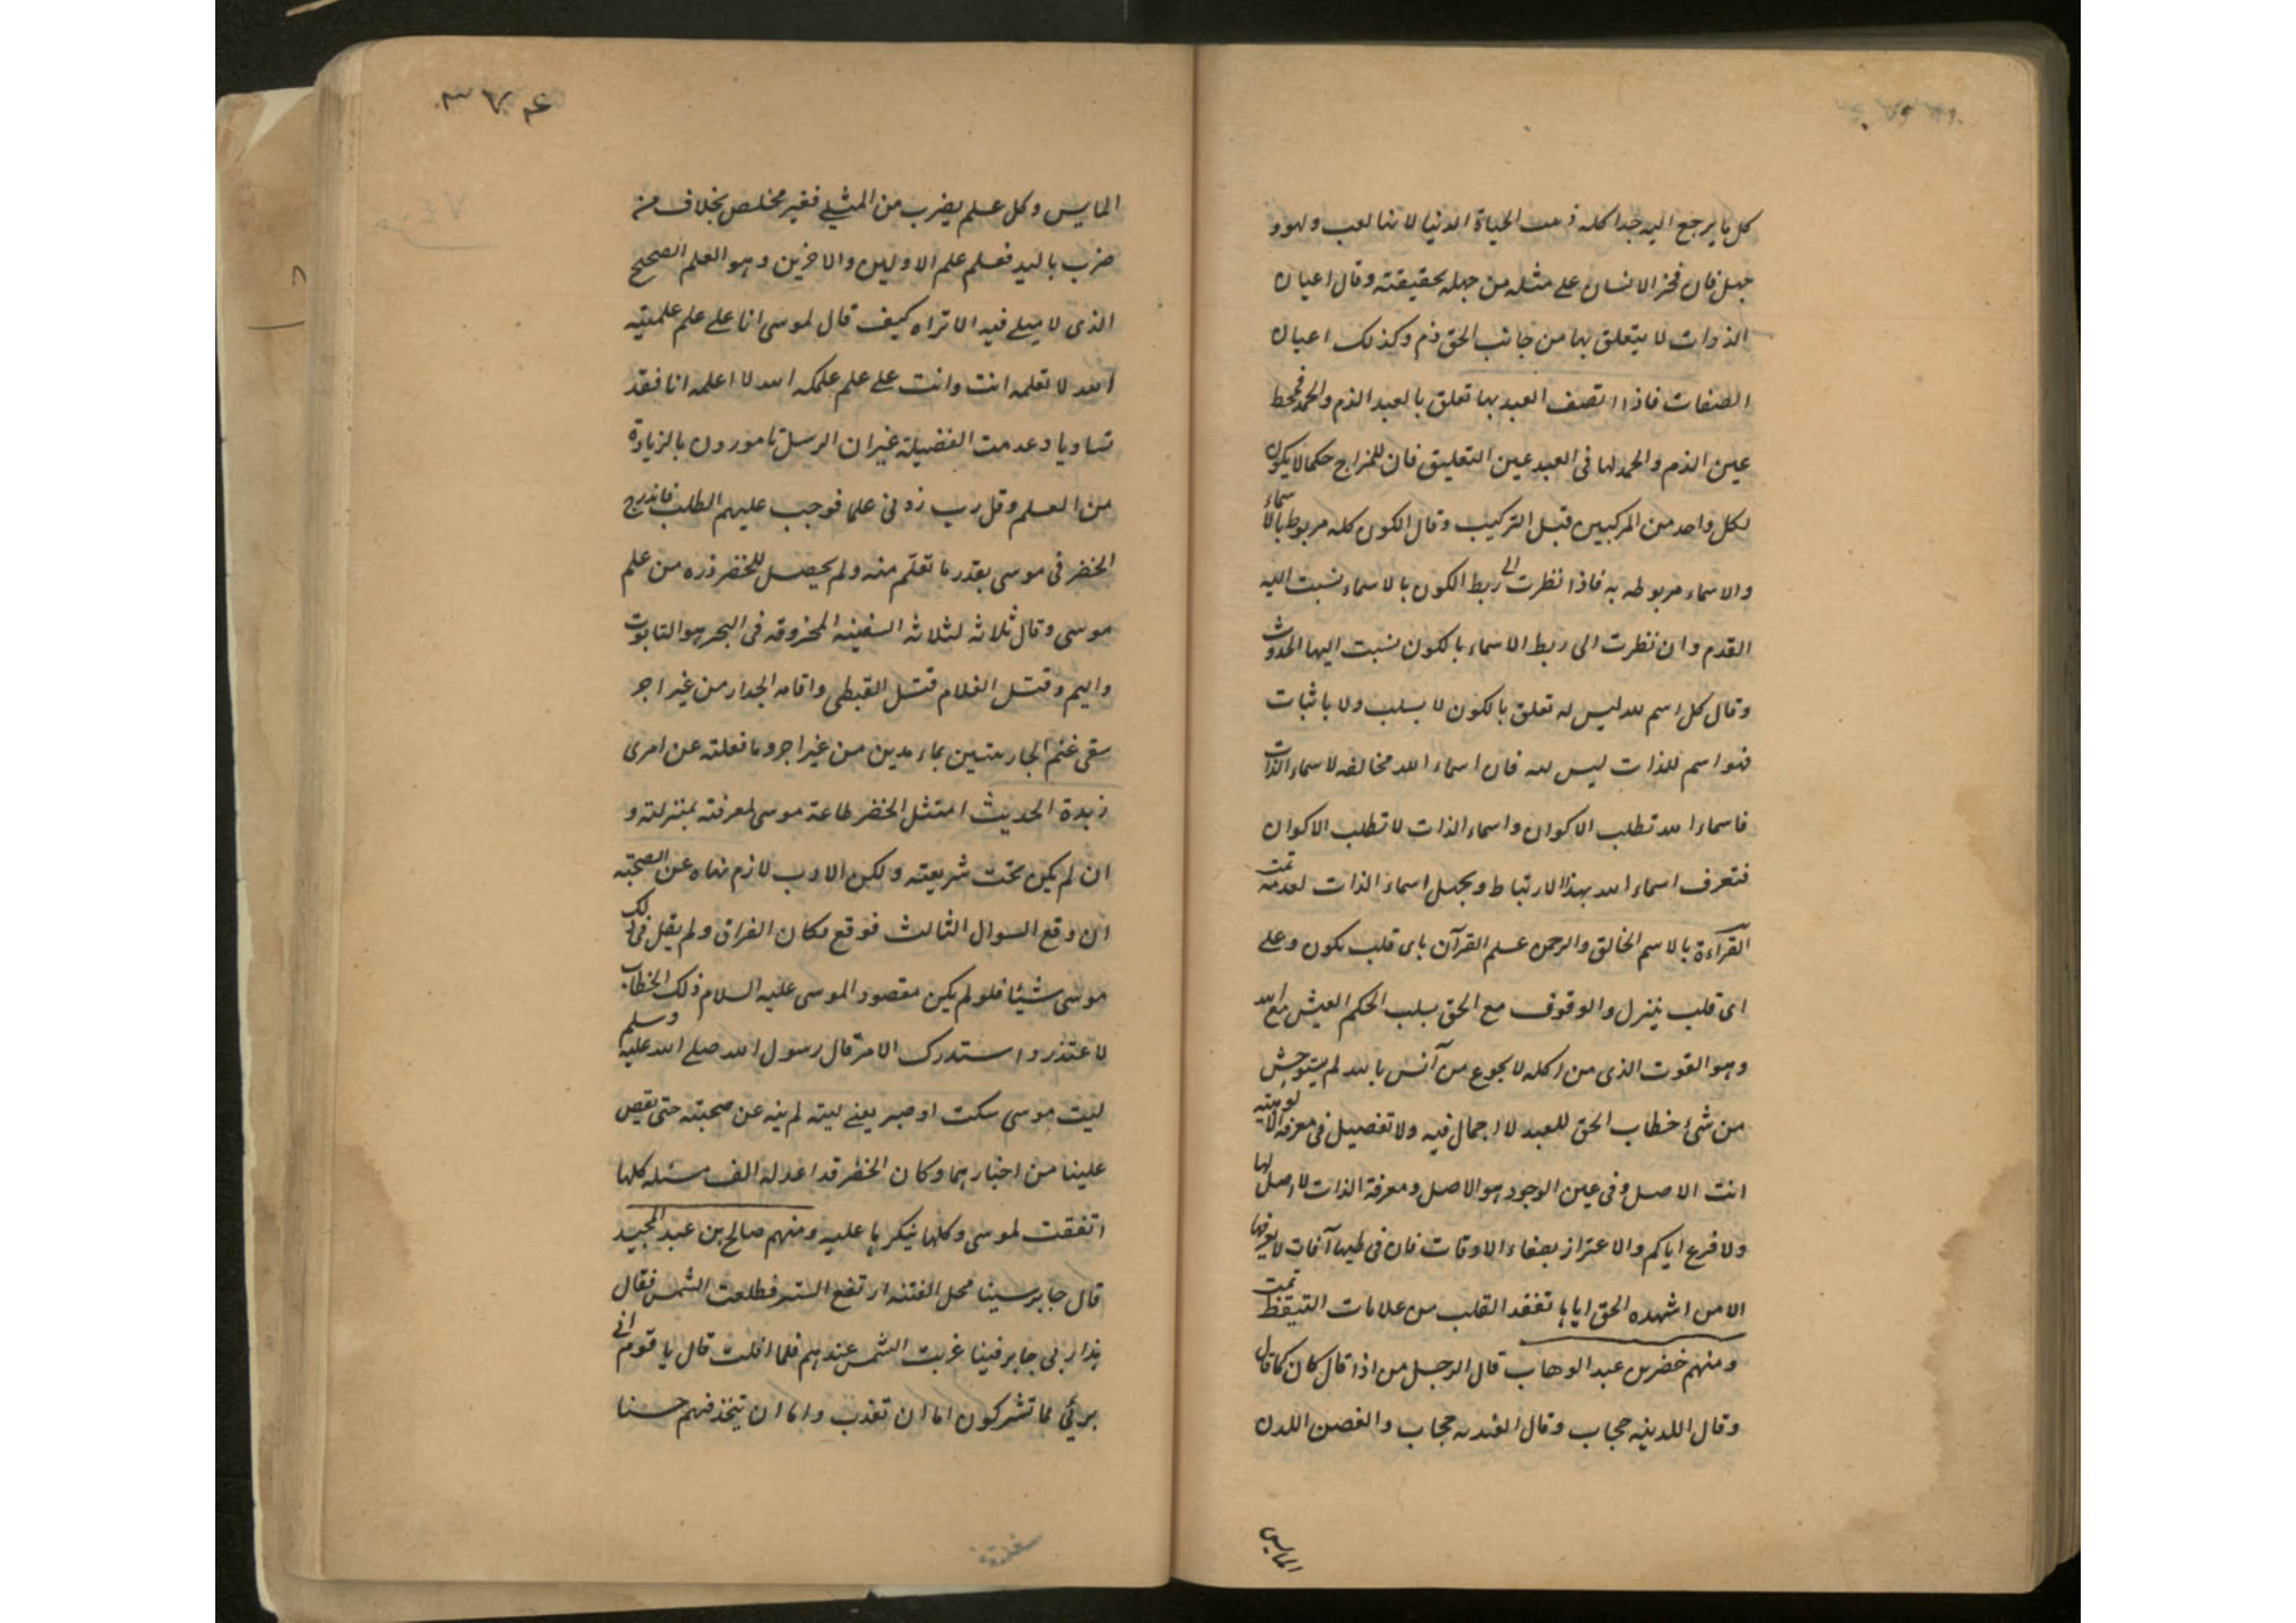 كل ما يرجع اليه جدا كله ذمت الحياة الدنيا لانها لعب ولهو و
جهل فان فخر الانسان على مثله من جهله بحقيقته وقال اعيان
الذوات لا يتعلق بها من جانب الحق ذم وكذلك اعيان
الصفات فاذا اتصف العبد بها تعلق بالعبد الذم والحمد فخط
عين الذم والحمد لها فى العبد عين التعليق فان للمزاج حكما لا يكون
لكل واحد من المركبين قبل التركيب وقال الكون كله مربوط بالاسماء
والاسماء مربوطه به فاذا نظرت الى ربط الكون بالاسماء نسبت اليه
القدم وان نظرت الى ربط الاسماء بالكون نسبت اليها الحدوث
وقال كل اسم لله ليس له تعلق بالكون لا بسلب ولا باثبات
فهو اسم للذات ليس لله فان اسماء الله مخالفه لاسماء الذات
فاسماء الله تطلب الاكوان واسماء الذات لا تطلب الاكوان
فتعرف اسماء الله بهذا الارتباط ويجهل اسماء الذات لعدمه تمت
القرآءة بالاسم الخالق والرحمن علم القرآن باى قلب يكون وعلى
اى قلب ينزل والوقوف مع الحق بسلب الحكم العيش مع الله
وهو القوت الذى من اكله لا يجوع من آنس بالله لم يتوحش
من شئ خطاب الحق للعبد لا اجمال فيه ولا تفصيل فى معرفه الالوهيته
انت الاصل وفى عين الوجود هو الاصل ومعرفة الذات لا اصل لها
ولا فرع اياكم والاغترار بصفاء الاوقات فان فى طيها آفات لا يعرفها
الا من اشهده الحق اياها تفقد القلب من علامات التيقظ تمت
ومنهم خضر بن عبد الوهاب قال الرجل من اذا قال كان كما قال
وقال اللدنيه حجاب وقال العنديه حجاب والغصن اللدن
المايس
٣٧٤
المايس وكل علم يضرب من المثلى فغير مخلص بخلاف من
ضرب باليد فعلم علم الاولين والاخرين وهو العلم الصحيح
الذى لا فيه الا تراه كيف قال لموسى انا على علم علمنيه
الله لا تعلمه انت وانت على علم علمكه الله لا اعلمه انا فقد
تساويا وعدمت الفضيلة غير ان الرسل مامورون بالزيادة
من العلم وقل رب زدنى علما فوجب عليهم الطلب فاندرج
الخضر فى موسى بقدر ما تعلم منه ولم يحصل للخضر ذره من علم
موسى وقال ثلاثه لثلاثه السفينه المخروقه فى البحر هو التابوت
واليم وقتل الغلام قتل القبطى واقامه الجدار من غير اجر
سقى غنم الجاريتين بماء مدين من غير اجر وما فعلته عن امرى
زبدة الحديث امتثل الخضر طاعة موسى لمعرفته بمنزلته و
ان لم يكن تحت شريعته ولكن الادب لازم نهاه عن الصحبته
ان وقع السوال الثالث فوقع فكان الفراق ولم يقل فى ذلك
موسى شيئا فلو لم يكن مقصود الموسى عليه السلام ذلك الخطاب
لاعتذر واستدرك الامر قال رسول الله صلى الله عليه وسلم
ليت موسى سكت او صبر يعنے ليته لم ينه عن صحبته حتى يقص
علينا من اخبارهما وكان الخضر قد اعد له الف مسئله كلها
اتفقت لموسى وكلها ينكرها عليه ومنهم صالح بن عبد المجيد
قال جابرسينا محل الفتنه ارتفع الستر فطلعت الشمس فقال
هذا ربى جابر فينا غربت الشمس عندهم فلما افلت قال يا قوم انى
برئي مما تشركون اما ان تعذب واما ان تتخذ فيهم حسنا